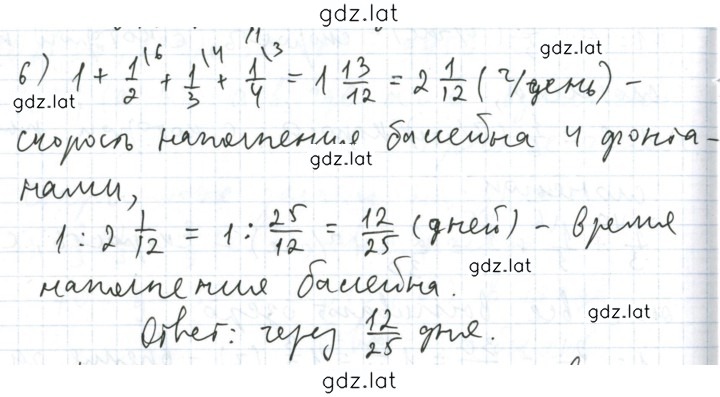 gdz.lat
б) 1 + 1/2 \6 + 1/3 \4 + 1/4 \3 = 1 13/12 = 2 1/12 (ч/день) - gdz.lat
gdz.lat
скорость наполнения бассейна 4 фонта-
gdz.lat
нами,
1 : 2 1/12 = 1 : 25/12 = 12/25 (дней) - время
gdz.lat
наполнения бассейна.
gdz.lat
Ответ: через 12/25 дня.
gdz.lat